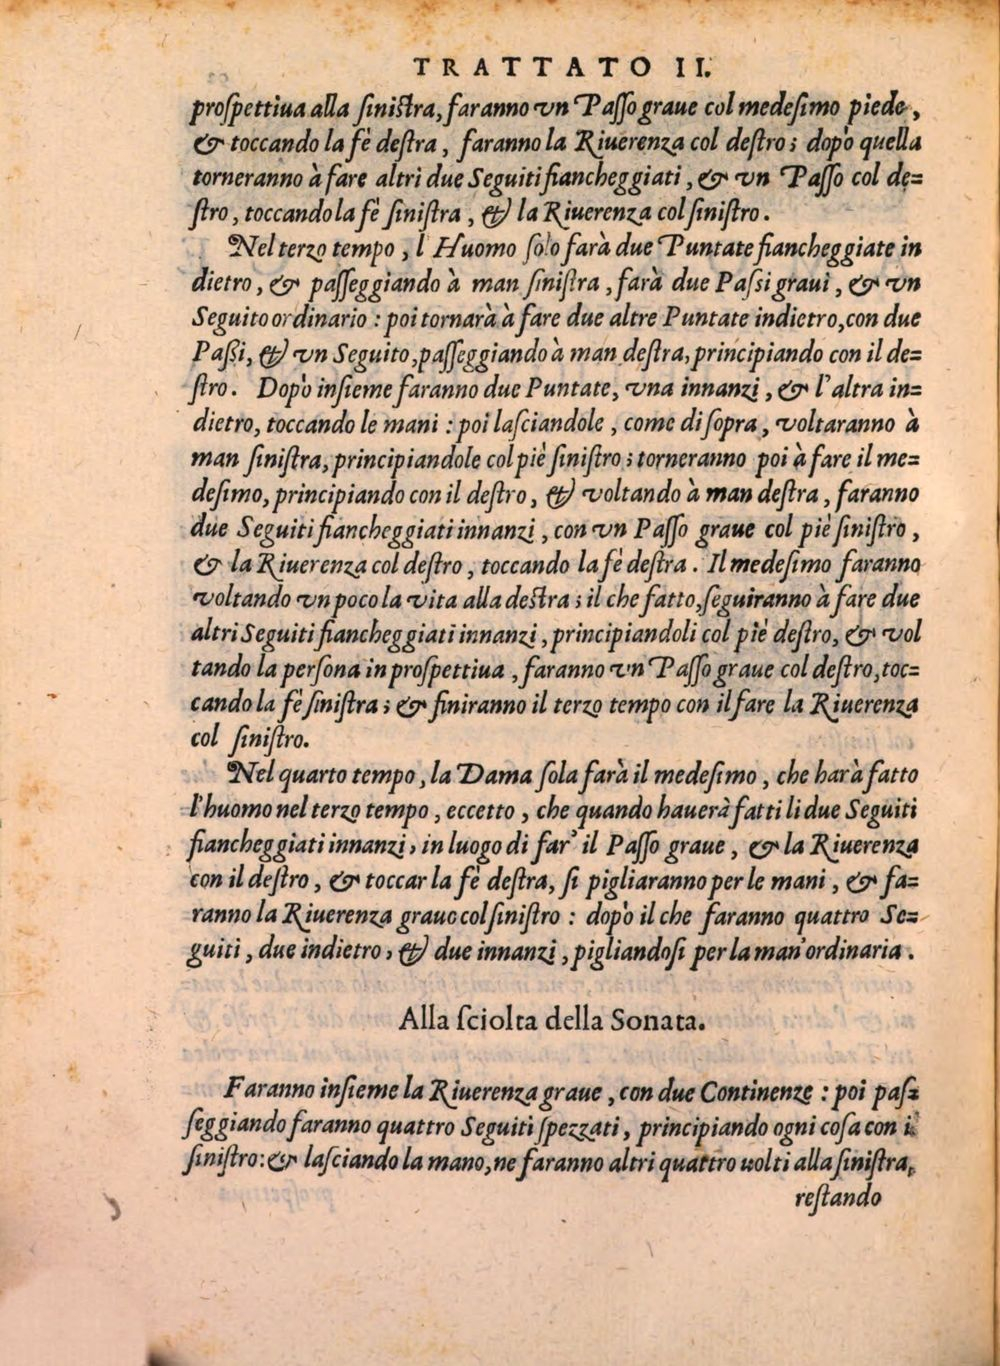 TRATTATO II.
proſpettiua alla ſiniſtra, faranno vn Paſſo graue col medeſimo piede,
& toccando la fè deſtra, faranno la Riuerenza col deſtro; dopò quella
torneranno à fare altri due Seguiti fiancheggiati, & vn Paſſo col de=
ſtro, toccando la fè ſiniſtra, & la Riuerenza col ſiniſtro.
Nel terzo tempo, l Huomo ſolo farà due Puntate fiancheggiate in
dietro, & paſſeggiando à man ſiniſtra, farà due Paſsi graui, & vn
Seguito ordinario: poi tornarà à fare due altre Puntate indietro, con due
Paſſi, & vn Seguito, paſſeggiando à man deſtra, principiando con il de=
ſtro. Dopò inſieme faranno due Puntate, vna innanzi, & l'altra in=
dietro, toccando le mani: poi laſciandole, come di ſopra, voltaranno à
man ſiniſtra, principiandole col piè ſiniſtro; torneranno poi à fare il me=
deſimo, principiando con il deſtro, & voltando à man deſtra, faranno
due Seguiti fiancheggiati innanzi, con vn Paſſo graue col piè ſiniſtro,
& la Riuerenza col deſtro, toccando la fè deſtra. Il medeſimo faranno
voltando vn poco la vita alla deſtra; il che fatto, ſeguiranno à fare due
altri Seguiti fiancheggiati innanzi, principiandoli col piè deſtro, & vol
tando la perſona in proſpettiua, faranno vn Paſſo graue col deſtro, toc=
cando la fè ſiniſtra; & finiranno il terzo tempo con il fare la Riuerenza
col ſiniſtro.
Nel quarto tempo, la Dama ſola farà il medeſimo, che harà fatto
l'huomo nel terzo tempo, eccetto, che quando hauerà fatti li due Seguiti
fiancheggiati innanzi, in luogo di far' il Paſſo graue, & la Riuerenza
con il deſtro, & toccar la fè deſtra, ſi pigliaranno per le mani, & fa=
ranno la Riuerenza graue col ſiniſtro: dopò il che faranno quattro Se=
guiti, due indietro, & due innanzi, pigliandoſi per la man'ordinaria.
Alla ſciolta della Sonata.
Faranno inſieme la Riuerenza graue, con due Continenze: poi paſ=
ſeggiando faranno quattro Seguiti ſpezzati, principiando ogni coſa con i
ſiniſtro: & laſciando la mano, ne faranno altri quattro uolti alla ſiniſtra,
reſtando